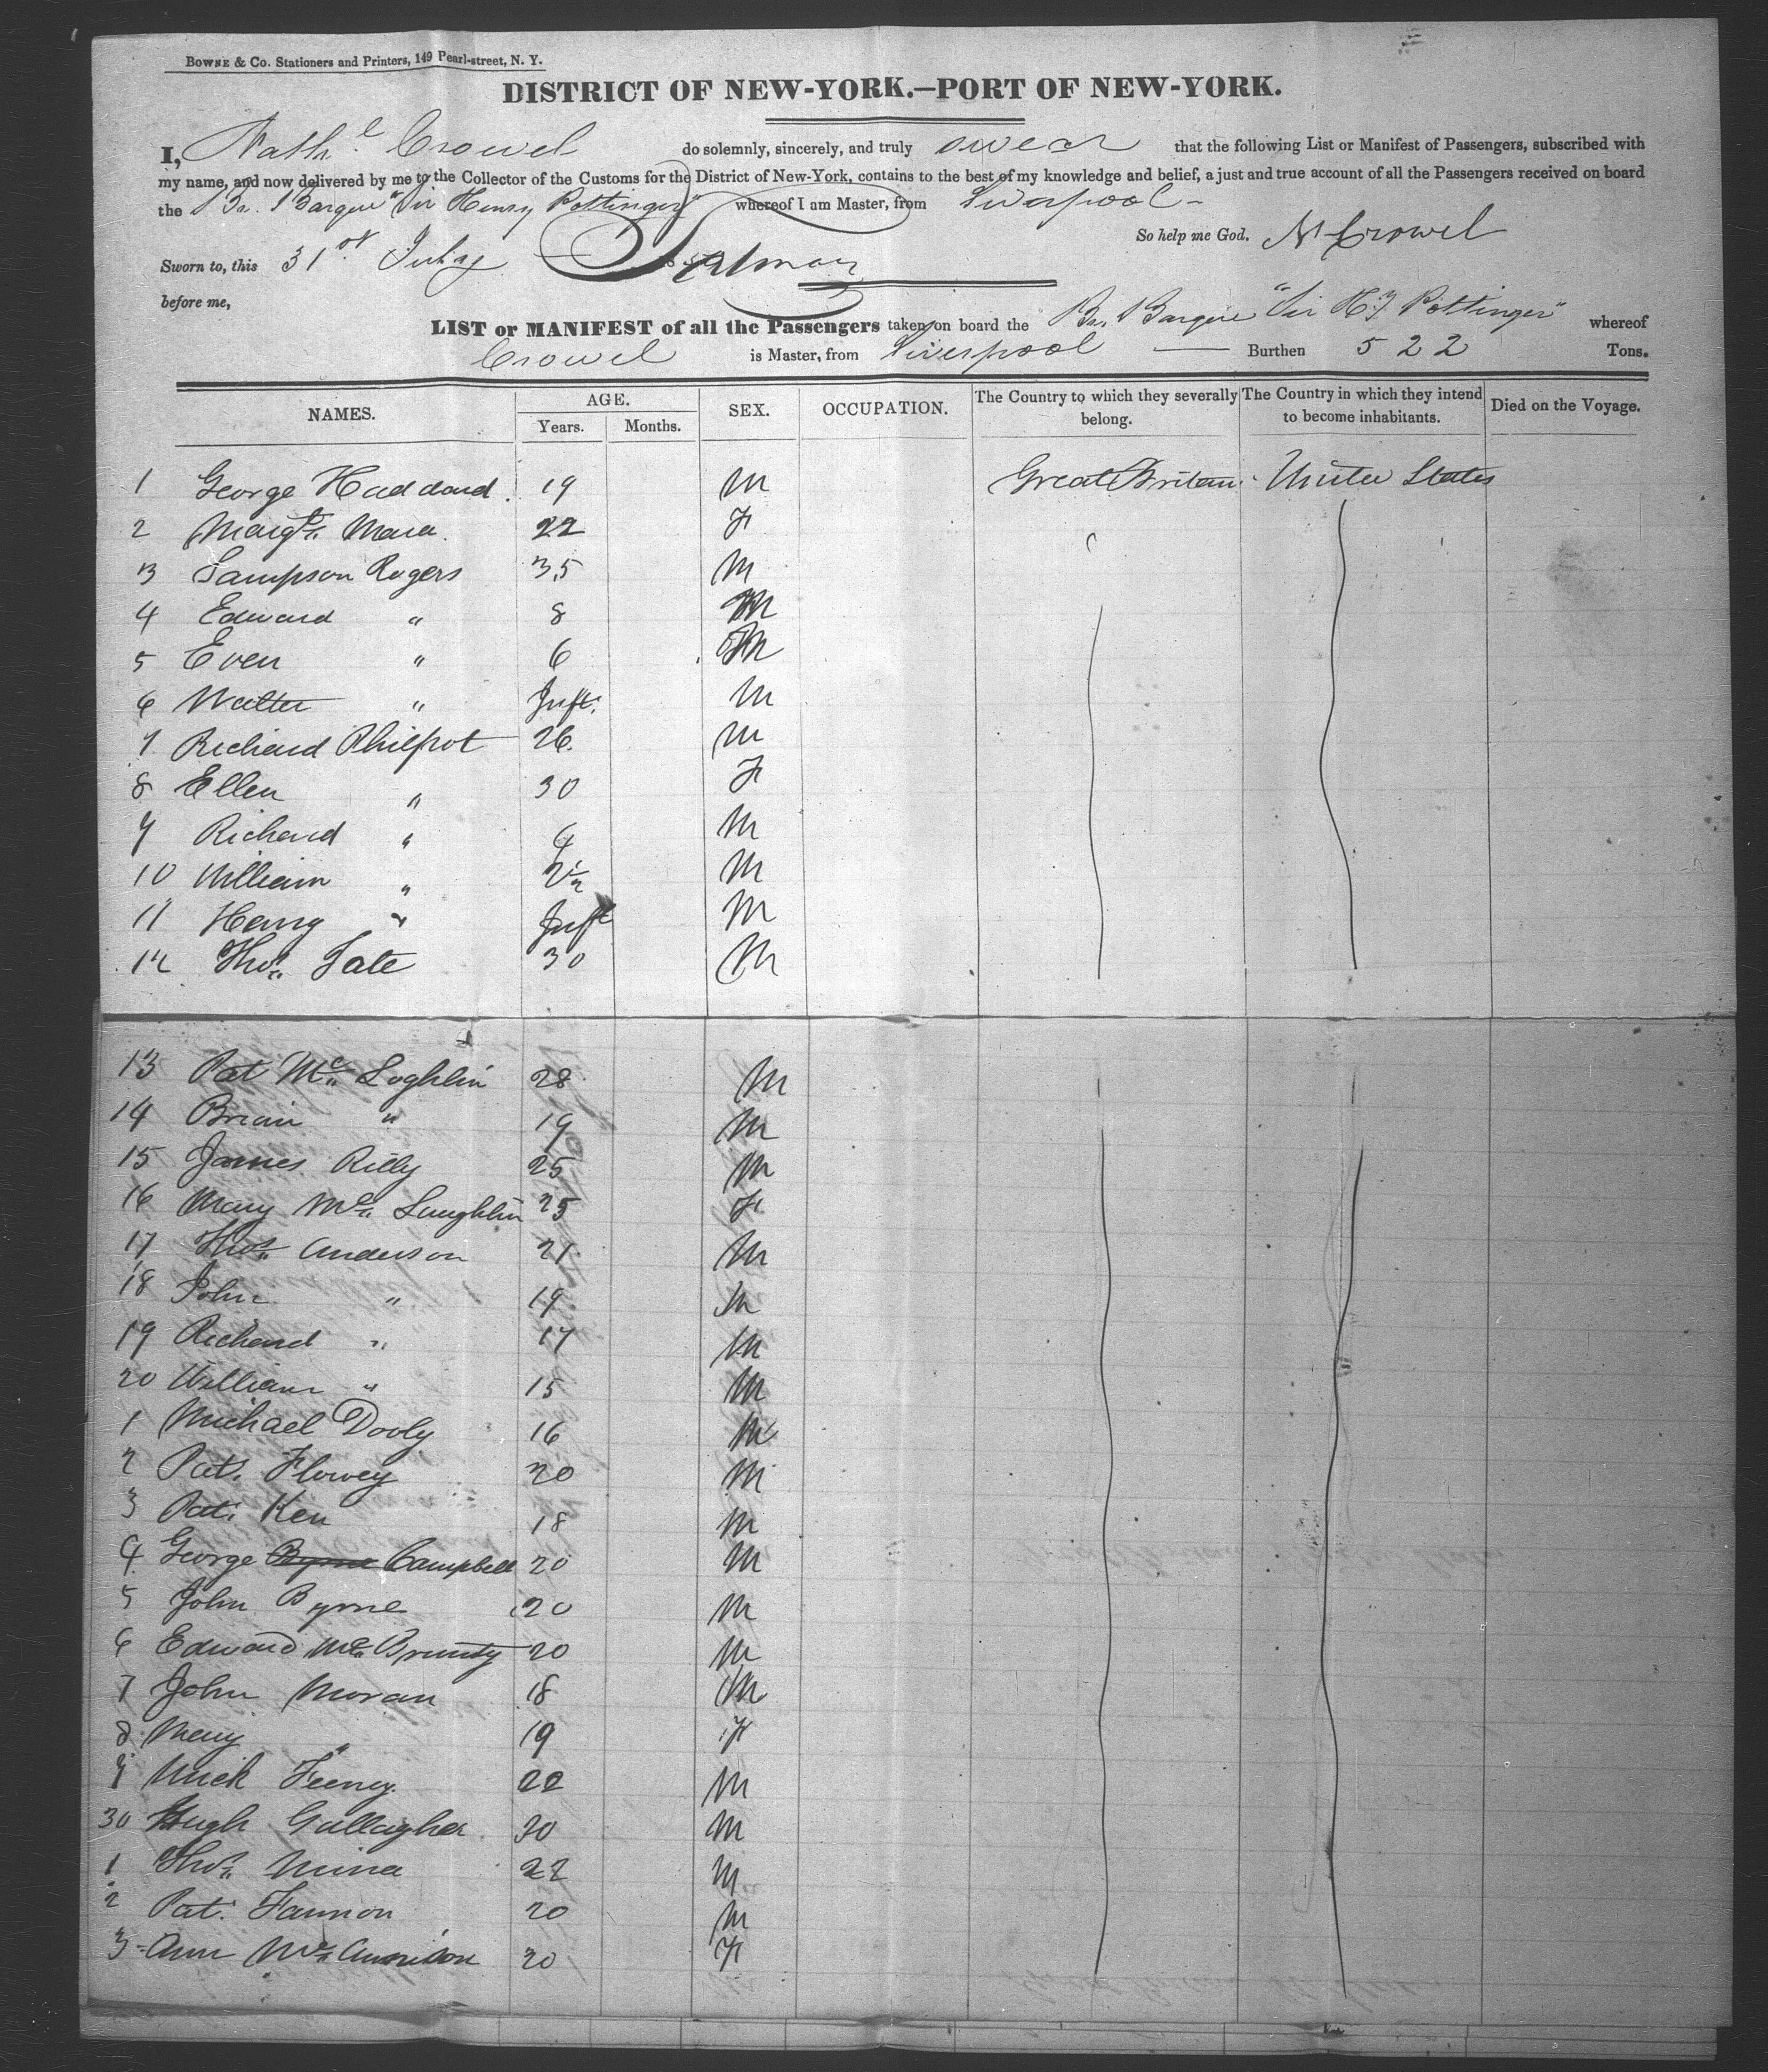 BOWNE & CO. Stationers and Printers, 149 Pearl-street, N. Y.
DISTRICT OF NEW-YORK.—PORT OF NEW-YORK.
I, Nathl Crowel do solemnly, sincerely, and truly swear that the following List or Manifest of Passengers, subscribed with
my name, and now delivered by me to the Collector of the Customs for the District of New-York, contains to the best of my knowledge and belief, a just and true account of all the Passengers received on board
the Br. Barque "Sir Henry Pottinger" whereof I am Master, from Liverpool -
So help me God. N Crowel
Sworn to, this 31st July
before me,
LIST or MANIFEST of all the Passengers taken on board the Br. Barque "Sir Hy Pottinger" whereof
Crowel is Master, from Liverpool — Burthen 522 Tons.
NAMES. AGE. Years. Months. SEX. OCCUPATION. The Country to which they severally belong. The Country in which they intend to become inhabitants. Died on the Voyage.
1 George Haddand 19 M Great Britain United States
2 Margt. Mara 22 F
3 Sampson Rogers 35 M
4 Edward " 8 M
5 Even " 6 M
6 Walter " Inft. M
7 Richard Philpot 26 M
8 Ellen " 30 F
9 Richard " 4 M
10 William " 2½ M
11 Henry " Inft M
12 Thos. Tate 30 M
13 Pat Mc. Loghlin 28 M
14 Brian " 19 M
15 James Rilly 25 M
16 Mary Mc. Laughlin 25 F
17 Thos. Anderson 21 M
18 John " 19 M
19 Richard " 17 M
20 William " 15 M
1 Michael Dooly 16 M
2 Pat. Flowey 20 M
3 Pat. Ken 18 M
4 George Byrne Campbell 20 M
5 John Byrne 20 M
6 Edward Mc. Brunty 20 M
7 John Moran 18 M
8 Mary " 19 F
9 Mick Feeney 22 M
30 Hugh Gallagher 20 M
1 Thos. Mina 22 M
2 Pat. Fannon 20 M
3 Ann Mc. 20 F